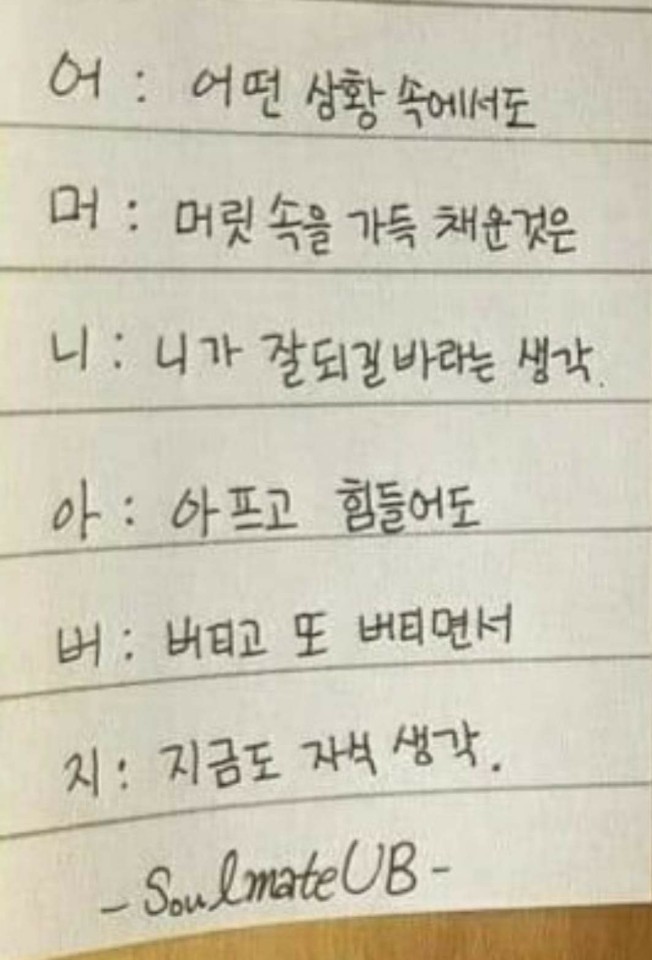 어 : 어떤 상황 속에서도
머 : 머릿속을 가득 채운것은
니 : 니가 잘되길바라는 생각.
아 : 아프고 힘들어도
버 : 버티고 또 버티면서
지 : 지금도 자식 생각.
- Soulmate UB -